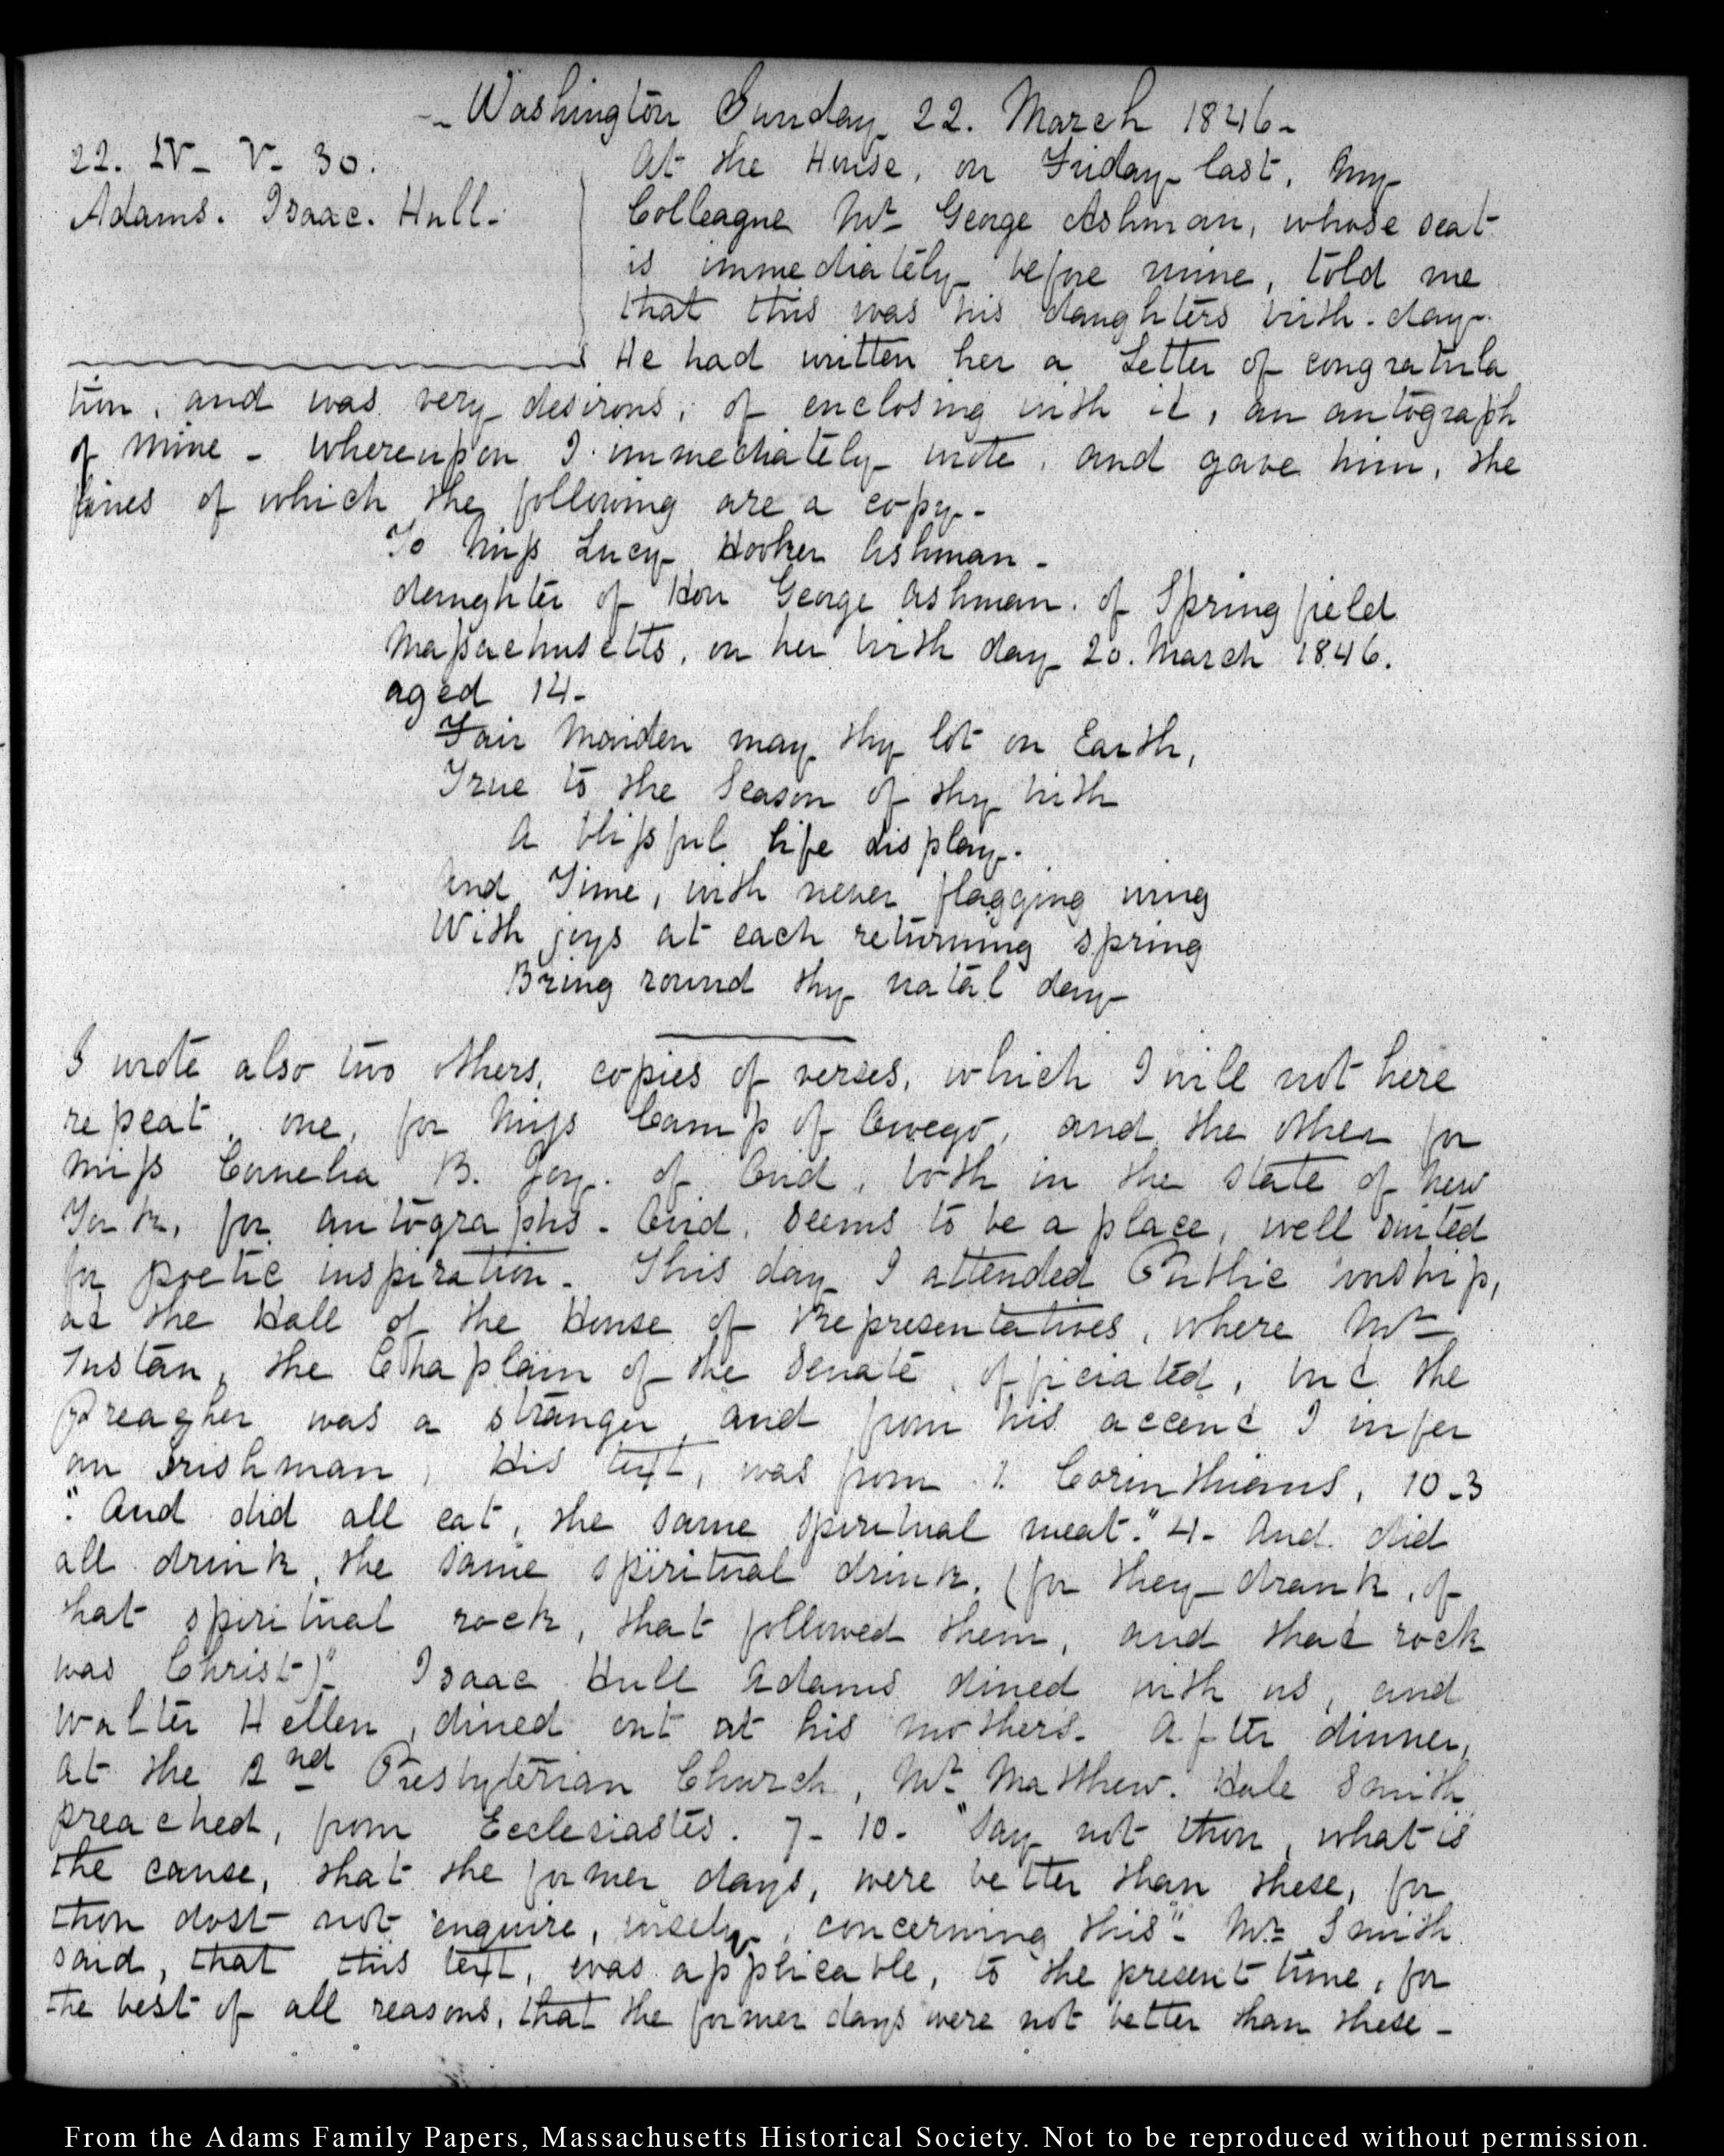 - Washington Sunday 22. March 1846-
22. IV- V- 30.
Adams. Isaac. Hull-
At the House, on Friday last, my
Colleague Mr. George Ashman, whose seat
is immediately before mine, told me
that this was his daughters birth-day.
He had written her a Letter of congratula
tion, and was very desirous, of enclosing with it, an autograph
of mine - whereupon I immediately wrote, and gave him, the
lines of which the following are a copy-
To Miss Lucy Hooker Ashman-
daughter of Hon George Ashman. of Springfield
Massachusetts, on her birth day 20. March 1846.
aged 14-
Fair Maiden may thy lot on Earth,
True to the Season of thy birth
A blissful life display.
And Time, with never flagging wing
With joys at each returning spring
Bring round thy natal day-
I wrote also two others, copies of verses, which I will not here
repeat, one, for Miss Camp of Owego, and the other for
Miss Cornelia B. Joy. of Ovid, both in the State of New
York, for autographs- Ovid, seems to be a place, well suited
for poetic inspiration- This day I attended Public worship,
at the Hall of the House of Representatives, where Mr
Tustan, the Chaplain of the Senate, officiated, but the
Preacher was a stranger, and from his accent I infer
an Irishman, His text, was from 1. Corinthians, 10-3
"And did all eat, the same spiritual meat." 4- And did
all drink, the same spiritual drink, (for they drank, of
that spiritual rock, that followed them, and that rock
was Christ)" Isaac Hull Adams dined with us, and
Walter Hellen, dined out at his mothers- After dinner,
at the 2nd Presbyterian Church, Mr. Matthew. Hale Smith
preached, from Ecclesiastes. 7- 10- "Say not thou, what is
the cause, that the former days, were better than these, for
thou dost not enquire, wisely, concerning this"- Mr. Smith
said, that this text, was applicable, to the present time, for
the best of all reasons, that the former days were not better than these-
From the Adams Family Papers, Massachusetts Historical Society. Not to be reproduced without permission.